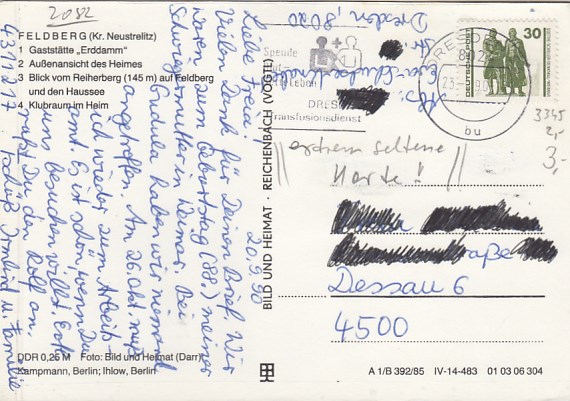 2082
FELDBERG (Kr. Neustrelitz)
1 Gaststätte „Erddamm"
2 Außenansicht des Heimes
3 Blick vom Reiherberg (145 m) auf Feldberg
und den Haussee
4 Klubraum im Heim
DDR 0,25 M Foto: Bild und Heimat (Darr),
Kampmann, Berlin; Ihlow, Berlin
BILD UND HEIMAT · REICHENBACH (VOGTL)
A 1/B 392/85 IV-14-483 01 03 06 304
20.9.90
Liebe Freia!
Vielen Dank für Deinen Brief. Wir
waren zum Geburtstag (88.) meiner
Schwiegermutter in Weimar. Bei
Gudula haben wir niemand
angetroffen. Am 26. Okt. muß
ich wieder zum Arbeits-
amt. Es ist schön, wenn Du
uns besuchen willst. Evtl.
rufst Du den Rolf an.
4311217 Tschüß Irmlind u. Familie
Abs.
Dresden, 8020
Spende
Blut
Leben!
DRESDEN
Transfusionsdienst
DRESDEN
802
bu
DEUTSCHE POST
30
3345
2,-
3,-
extrem seltene
Karte!
Straße
Dessau 6
4500